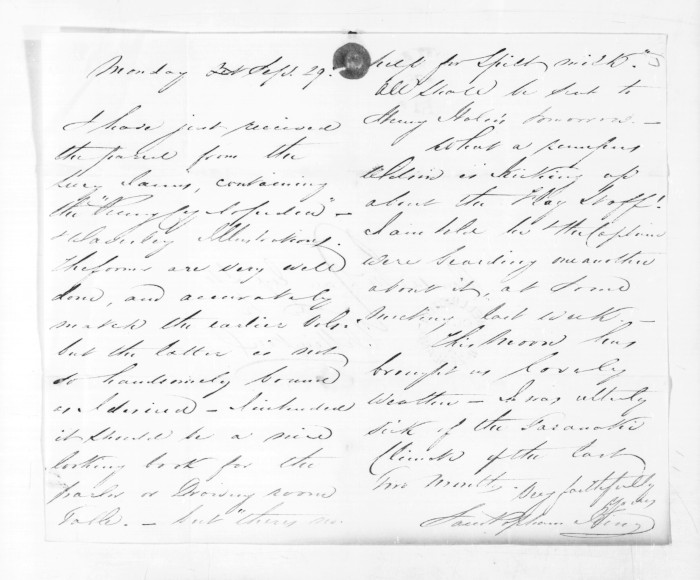 Monday Sept. 29.
I have just received
the parcel from the
Lucy James, containing
the
& Waverley Illustrations.
The former are very well
done, and accurately
match the earlier Vols.
but the latter is not
so handsomely bound
as I desired — I intended
it should be a nice
looking book for the
parlor or Drawing room
Table. — but "there's no
help for spilt milk."
All shall be sent to
Henry tomorrow. —
What a
is kicking up
about the Flag Staff!
I am told he & the Captain
were one another
about it, at some
meeting last week —
This Moon has
brought us lovely
weather — I was utterly
sick of the Taranaki
Climate of the last
two months.
Very faithfully
yours
King